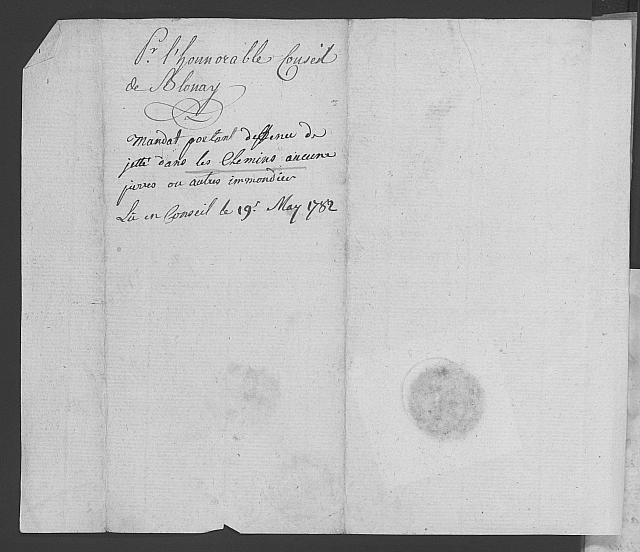 Pr. l'honnorable Conseil
de Blonay
Mandat portant deffence de
jetter dans les Chemins aucune
pierres ou autres immondices
Lû en Conseil le 19e. May 1782